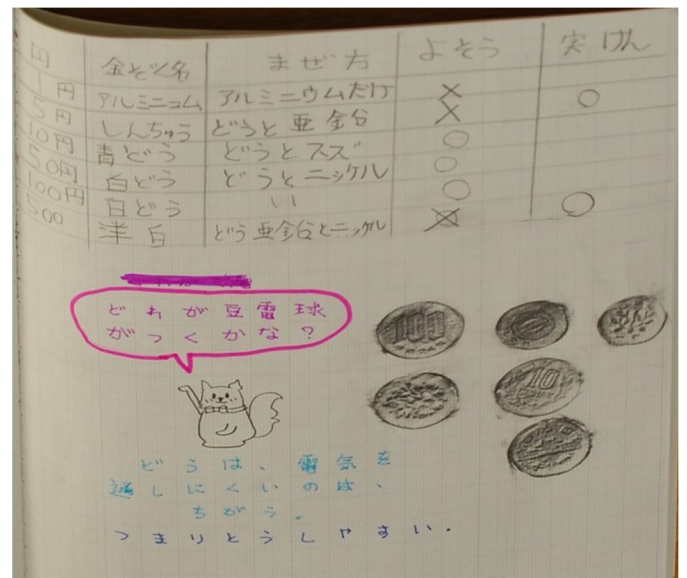 円 金ぞく名 まぜ方 よそう 実けん
1円 アルミニユム アルミニウムだけ × ○
5円 しんちゅう どうと亜鉛 ×
10円 青どう どうとスズ ○
50円 白どう どうとニッケル ○
100円 白どう 〃 ○ ○
500 洋白 どう亜鉛とニッケル ×
どれが豆電球
がつくかな?
100
10
どうは、電気を
通しにくいのは、
ちがう。
つまりとうしやすい.